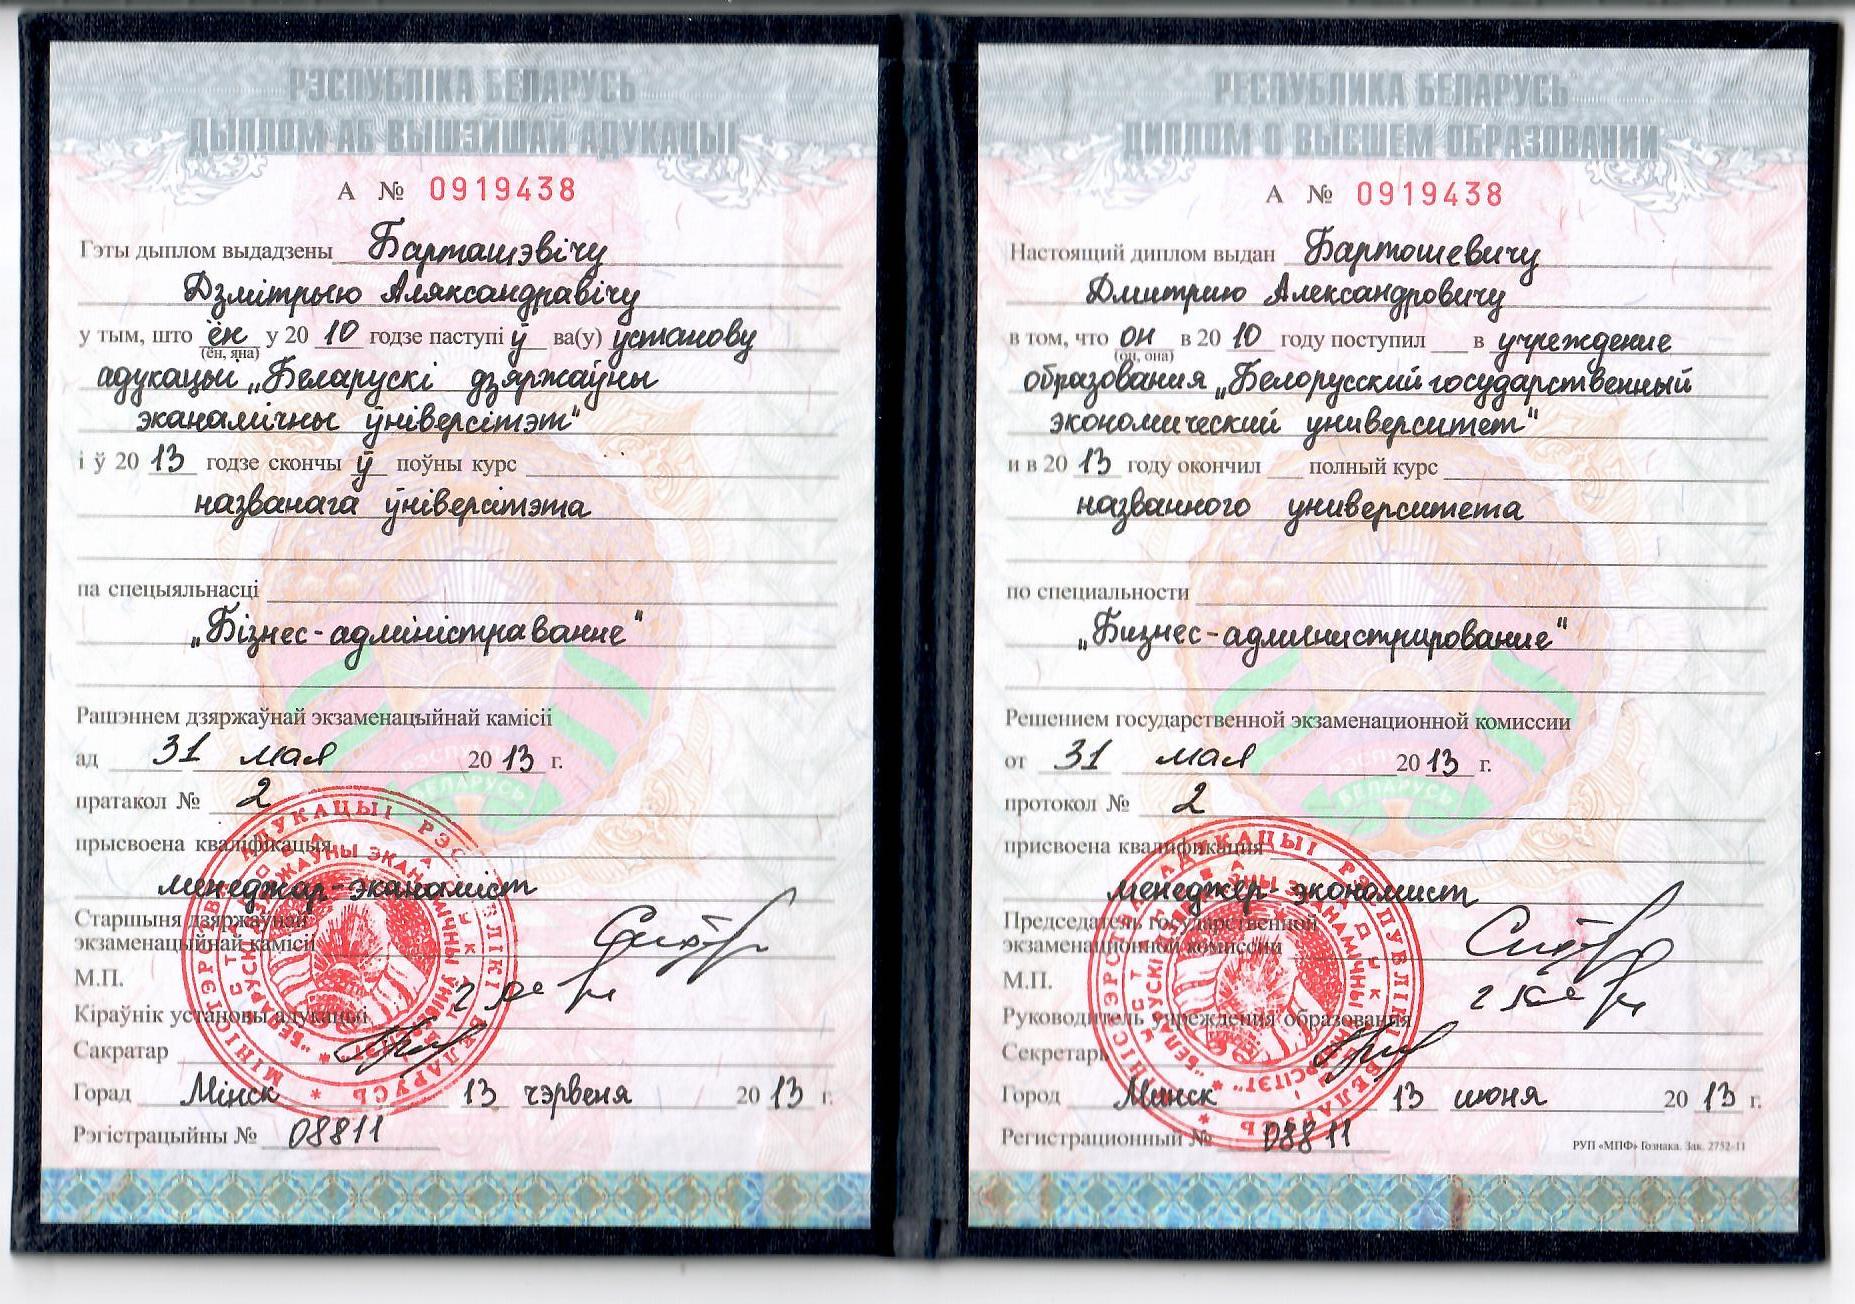 РЭСПУБЛІКА БЕЛАРУСЬ
ДЫПЛОМ АБ ВЫШЭЙШАЙ АДУКАЦЫІ
А № 0919438
Гэты дыплом выдадзены Барташэвічу
Дзмітрыю Аляксандравічу
у тым, што ён у 20 10 годзе паступі ў ва(у) установу
(ён, яна)
адукацыі „Беларускі дзяржаўны
эканамічны ўніверсітэт"
і ў 20 13 годзе скончы ў поўны курс
названага ўніверсітэта
па спецыяльнасці
„Бізнес-адміністраванне"
Рашэннем дзяржаўнай экзаменацыйнай камісіі
ад 31 мая 20 13 г.
пратакол № 2
прысвоена кваліфікацыя
менеджар-эканаміст
Старшыня дзяржаўнай
экзаменацыйнай камісіі
М.П.
Кіраўнік установы адукацыі
Сакратар
Горад Мінск 13 чэрвеня 20 13 г.
Рэгістрацыйны № 08811
РЕСПУБЛИКА БЕЛАРУСЬ
ДИПЛОМ О ВЫСШЕМ ОБРАЗОВАНИИ
А № 0919438
Настоящий диплом выдан Бартошевичу
Дмитрию Александровичу
в том, что он в 20 10 году поступил в учреждение
(он, она)
образования „Белорусский государственный
экономический университет"
и в 20 13 году окончил полный курс
названного университета
по специальности
„Бизнес-администрирование"
Решением государственной экзаменационной комиссии
от 31 мая 20 13 г.
протокол № 2
присвоена квалификация
менеджер-экономист
Председатель государственной
экзаменационной комиссии
М.П.
Руководитель учреждения образования
Секретарь
Город Минск 13 июня 20 13 г.
Регистрационный № 08811
РУП «МПФ» Гознака. Зак. 2752-11